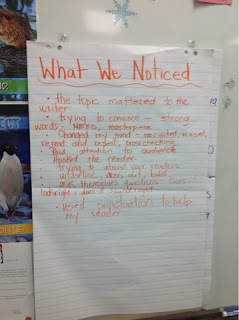 What We Noticed
• the topic mattered to the
writer
• trying to convince - strong
words - masterpiece
• Changed my mind - revisited, revised,
reread and
• Paid attention to audience
• Hooked the reader.
• trying to your readers
underline, bold
• asks themselves questions Does it
look right, does it sound right
• used punctuation to help
my reader